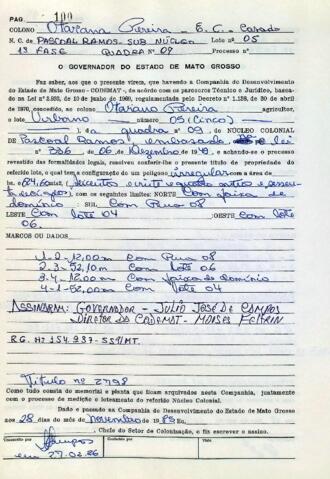 PAG. 100
COLONO Otaviano Pereira - E. C. Casado
N. C. de PASCOAL RAMOS - SUB NÚCLEO Lote nº 05
1ª FASE QUADRA Nº 09 Processo nº
O GOVERNADOR DO ESTADO DE MATO GROSSO
Faz saber, aos que o presente virem, que havendo a Companhia de Desenvolvimento
do Estado de Mato Grosso - CODEMAT -, de acordo com os pareceres Técnico e Jurídico, basea-
do na Lei nº 2.925, de 10 de junho de 1969, regulamentada pelo Decreto n.º 1.138, de 30 de abril
de 1970, concedido, ao colono Otaviano Pereira, agricultor,
o lote Urbano número 05 (cinco)
), da quadra nº 09, DE NÚCLEO COLONIAL
DE Pascoal Ramos, embasado lei
nº 336 de 06 de Dezembro, e achando-se o processo
revestido das formalidades legais, resolveu conferir-lhe o presente título de propriedade do
referido lote, o qual tem a configuração de um polígono irregular com a área de
com os seguintes limites: NORTE Com faixa de
domínio SUL Com Rua 08
LESTE Com lote 04 OESTE Com lote
06.
MARCOS OU DADOS
1-2 - 12,00m com Rua 08
2-3 - 52,10m com lote 06
3-4 - 12,00m com faixa de domínio
4-1 - 52,00m com lote 04
ASSINARAM: GOVERNADOR - JULIO JOSÉ DE CAMPOS
DIRETOR DA CODEMAT - MOISES FELTRIN
R.G. Nº 154.937 - SSP/MT.
Título nº 2798
Como tudo consta do memorial e planta que ficam arquivados nesta Companhia, juntamente
com o processo de medição e loteamento do referido Núcleo Colonial.
Dado e passado na Companhia de Desenvolvimento do Estado de Mato Grosso
aos 28 dias do mês de novembro de 1985 Eu,
, Chefe do Setor de Colonização, o fiz escrever e assino.
Transcrito por Conferido por Visto
Campos
em 27.02.86